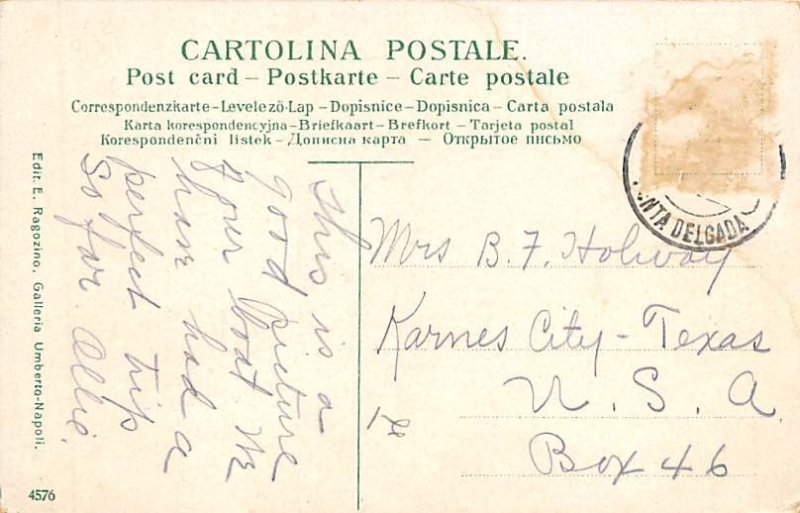 CARTOLINA POSTALE.
Post card – Postkarte – Carte postale
Correspondenzkarte – Levelezö-Lap – Dopisnice – Dopisnica – Carta postala
Karta korespondencyjna – Briefkaart – Brefkort – Tarjeta postal
Korespondenčni listek – Дописна карта – Открытое письмо
NTA DELGADA
This is a
good picture
of our boat we
have had a
perfect trip
so far. Ollie.
Mrs B. F. Holway
Karnes City – Texas
U. S. A
Box 46
Edit. E. Ragozino, Galleria Umberto-Napoli.
4576